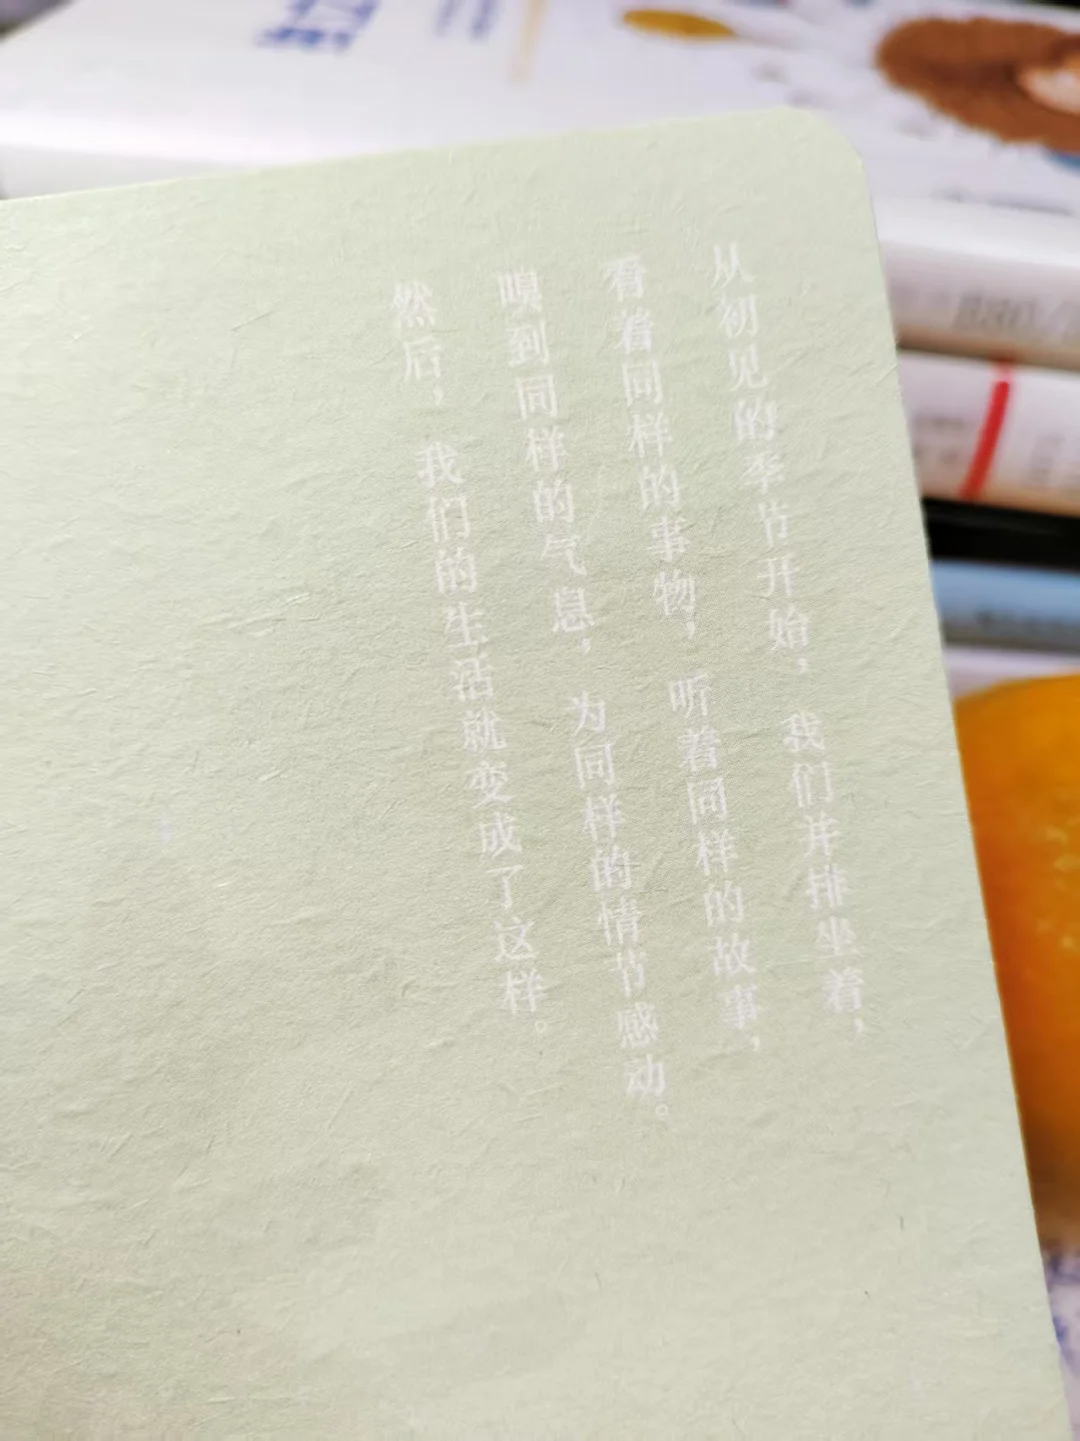 从初见的季节开始，我们并排坐着，
看着同样的事物，听着同样的故事，
嗅到同样的气息，为同样的情节感动。
然后，我们的生活就变成了这样。